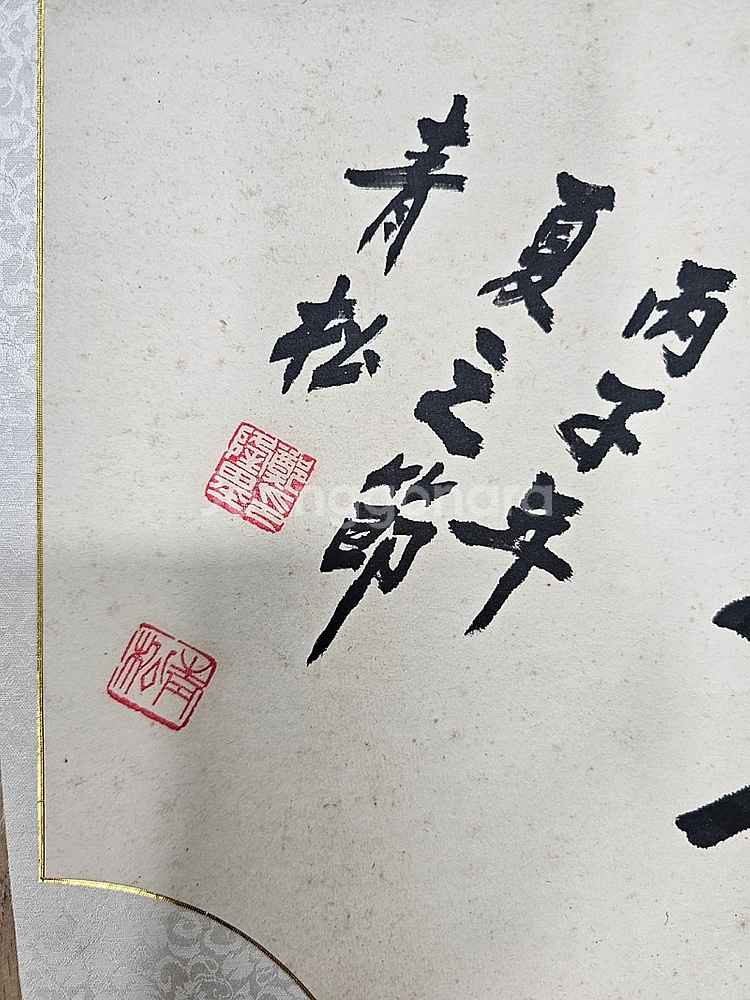 丙子年
夏之節
青松
青松